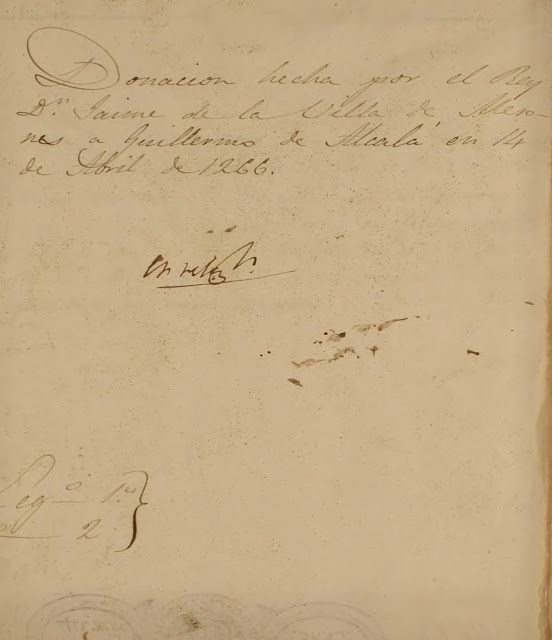 Donacion hecha por el Rey
Dn. Jaime de la Villa de Mero-
nes a Guillermo de Alcalá en 14
de Abril de 1266.
Legº 1º
2